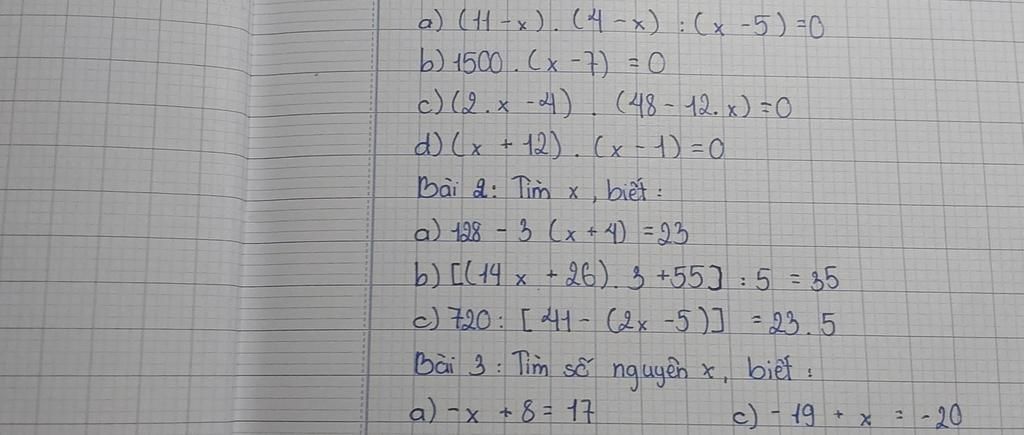 a) (11 - x) . (4 - x) : (x - 5) = 0
b) 1500 . (x - 7) = 0
c) (2 . x - 4) . (48 - 12 . x) = 0
d) (x + 12) . (x - 1) = 0
Bài 2: Tìm x, biết:
a) 128 - 3 (x + 4) = 23
b) [(14 x + 26) . 3 + 55] : 5 = 35
c) 720 : [41 - (2x - 5)] = 23 . 5
Bài 3: Tìm số nguyên x, biết:
a) - x + 8 = 17 c) - 19 + x = - 20